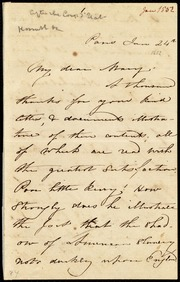 Jan 1852
Paris Jan 24th
My dear Mary.
A thousand
thanks for your kind
letter, & documents. Most
true of their contents, all
of which are red with
the greatest satisfaction
Poor little Henry! How
strongly does he illustrate
the fact, that the shad-
ow of American Slavery
rests darkly upon